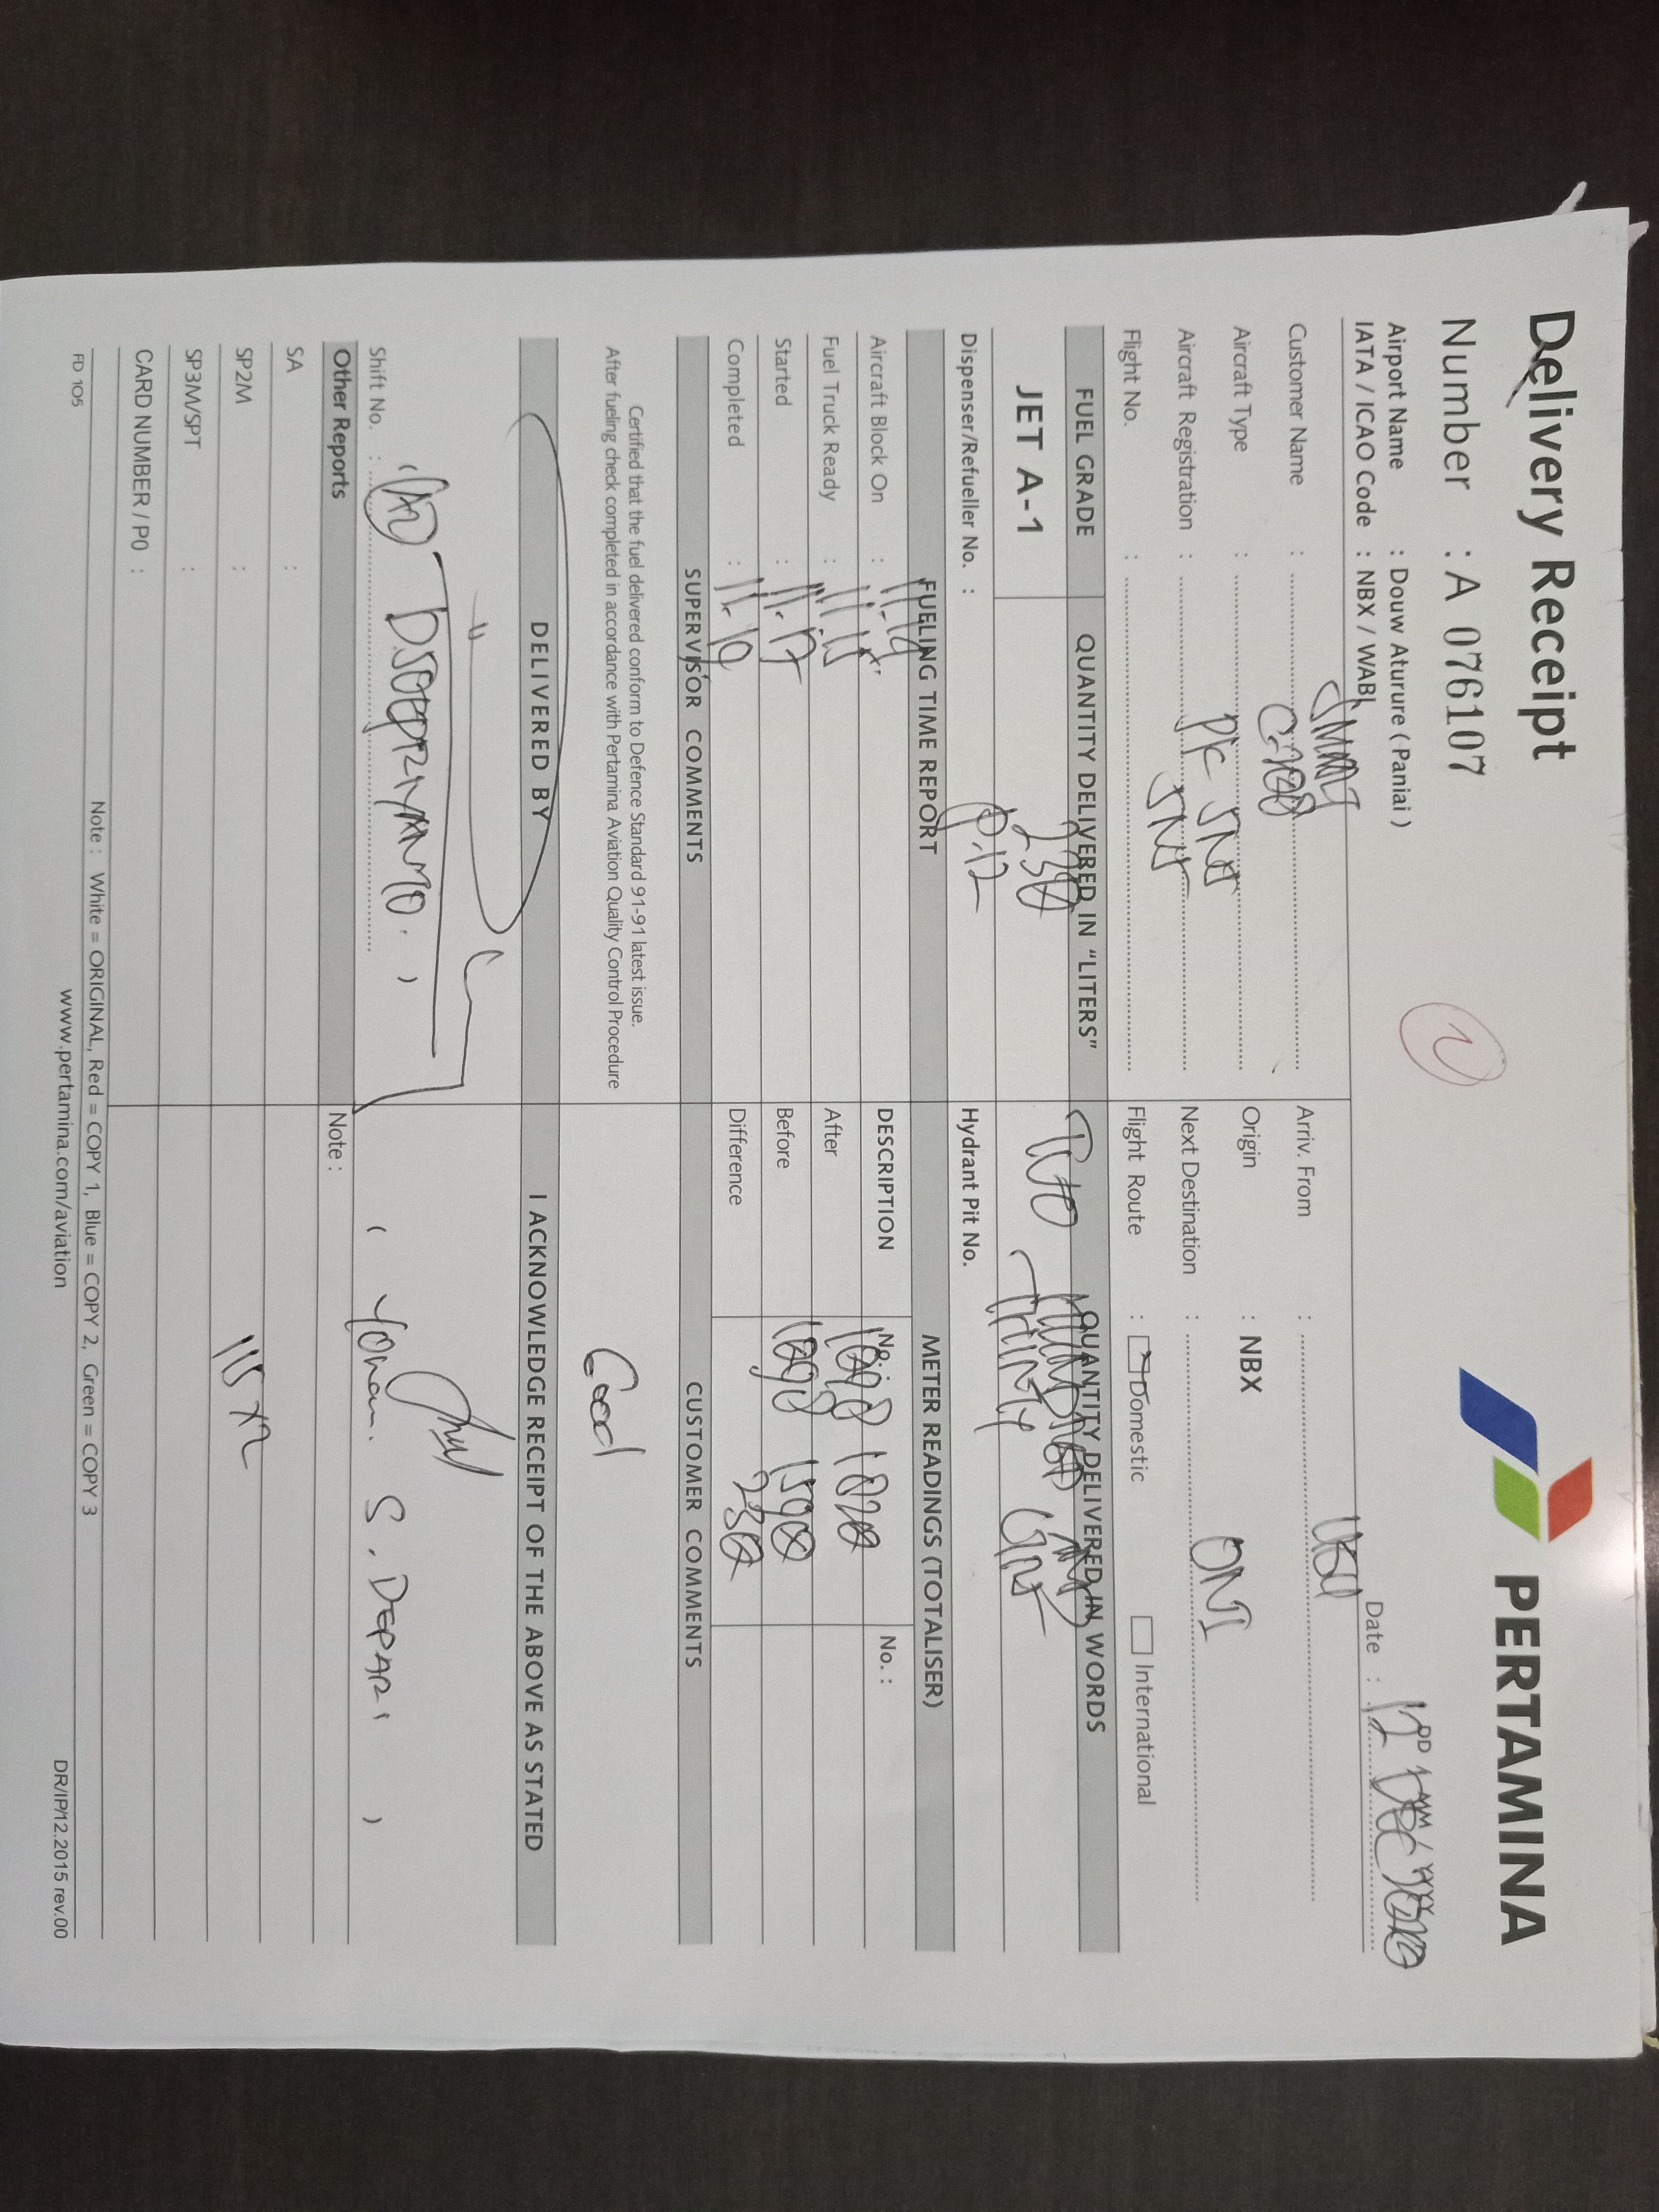 Delivery Receipt
PERTAMINA
Number : A 076107
Airport Name : Douw Aturure ( Paniai )
IATA / ICAO Code : NBX / WABI
Date : 12 DEC
DD MM YYYY
Customer Name :
Arriv. From :
Aircraft Type :
Origin : NBX
Aircraft Registration : PK SNN
Next Destination : ONI
Flight No. :
Flight Route : Domestic International
FUEL GRADE QUANTITY DELIVERED IN "LITERS" QUANTITY DELIVERED IN WORDS
JET A-1 230 TWO HUNDRED AND
THIRTY
Dispenser/Refueller No. : P.12 Hydrant Pit No.
FUELING TIME REPORT METER READINGS (TOTALISER)
Aircraft Block On : DESCRIPTION No. : No. :
Fuel Truck Ready : 11.15 After
Started : 11.17 Before
Completed : 11.19 Difference 230
SUPERVISOR COMMENTS CUSTOMER COMMENTS
Certified that the fuel delivered conform to Defence Standard 91-91 latest issue.
After fueling check completed in accordance with Pertamina Aviation Quality Control Procedure
Good
DELIVERED BY I ACKNOWLEDGE RECEIPT OF THE ABOVE AS STATED
Shift No. :
( S. DEPARI )
Other Reports Note :
SA :
SP2M :
SP3M/SPT :
CARD NUMBER / P0 :
Note : White = ORIGINAL, Red = COPY 1, Blue = COPY 2, Green = COPY 3
FD 105 www.pertamina.com/aviation DR/IP/12.2015 rev.00